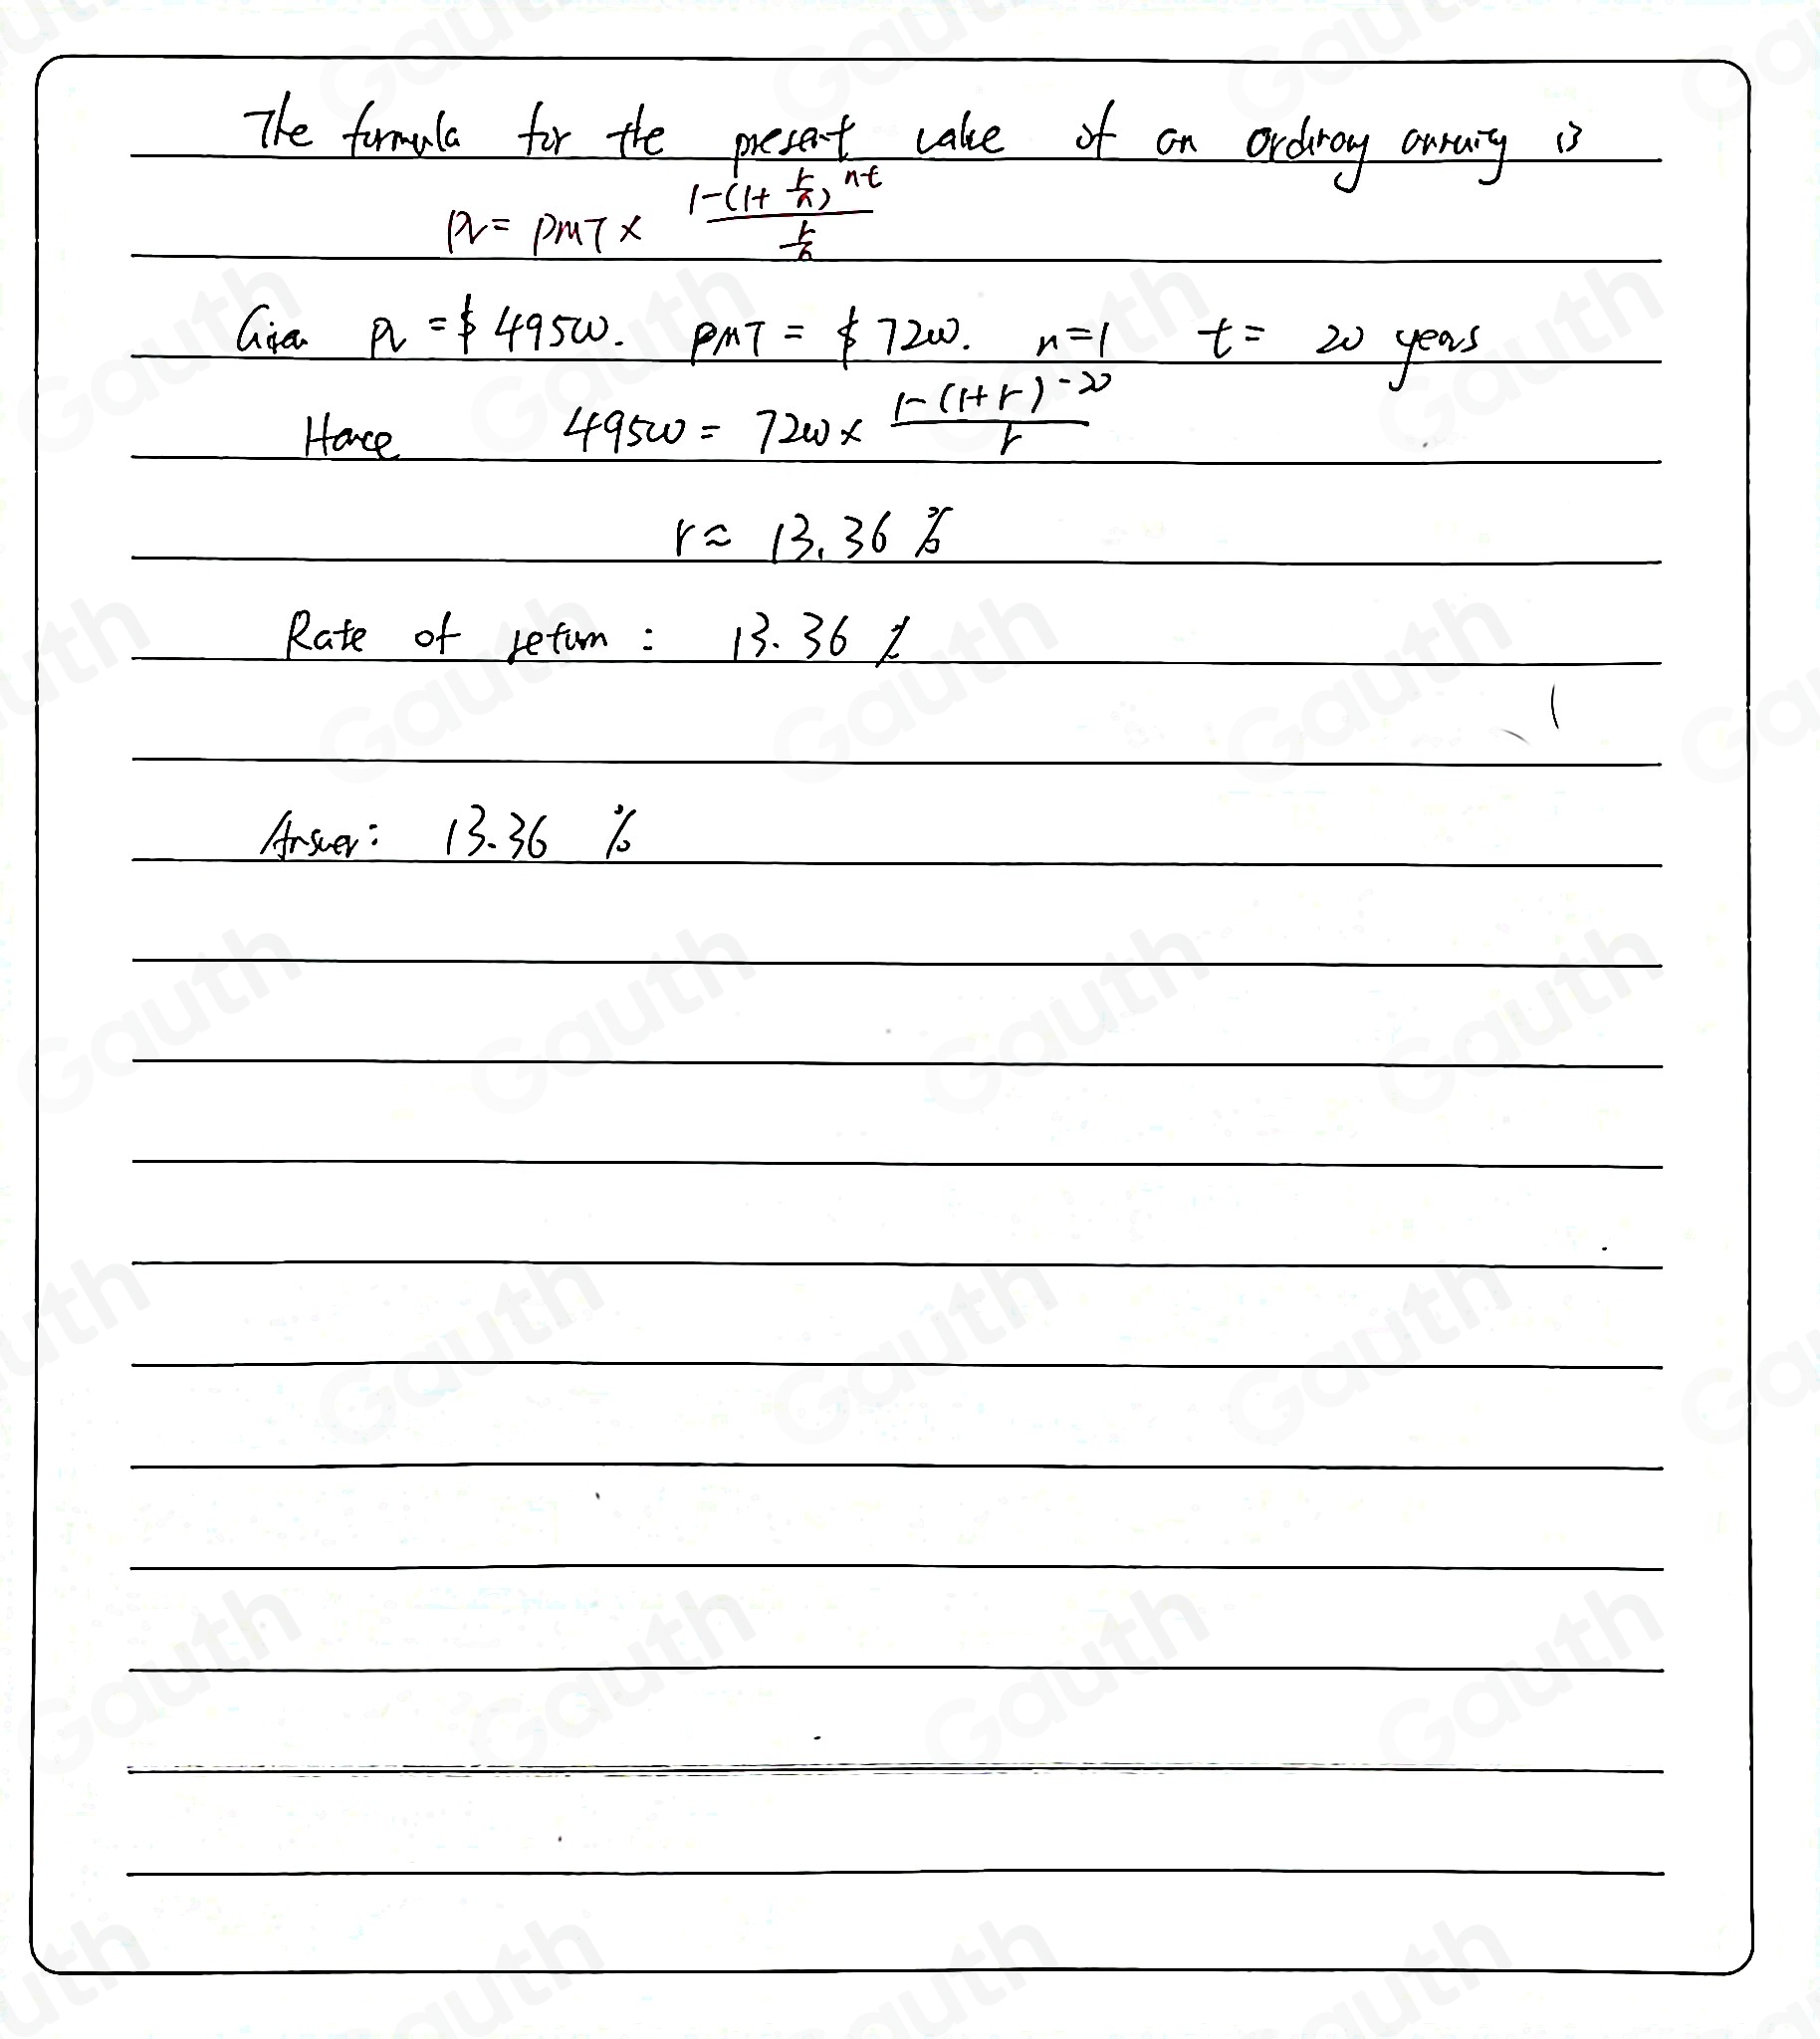 The formula for the present value of an ordinary annuity is
PV = PMT × \frac{1-(1+\frac{r}{n})^{nt}}{\frac{r}{n}}
Given PV = $ 49500. PMT = $ 7200. n=1 t= 20 years
Hence 49500 = 7200 × \frac{1-(1+r)^{-20}}{r}
r ≈ 13.36 %
Rate of return : 13.36 %
Answer: 13.36 %
Gauth